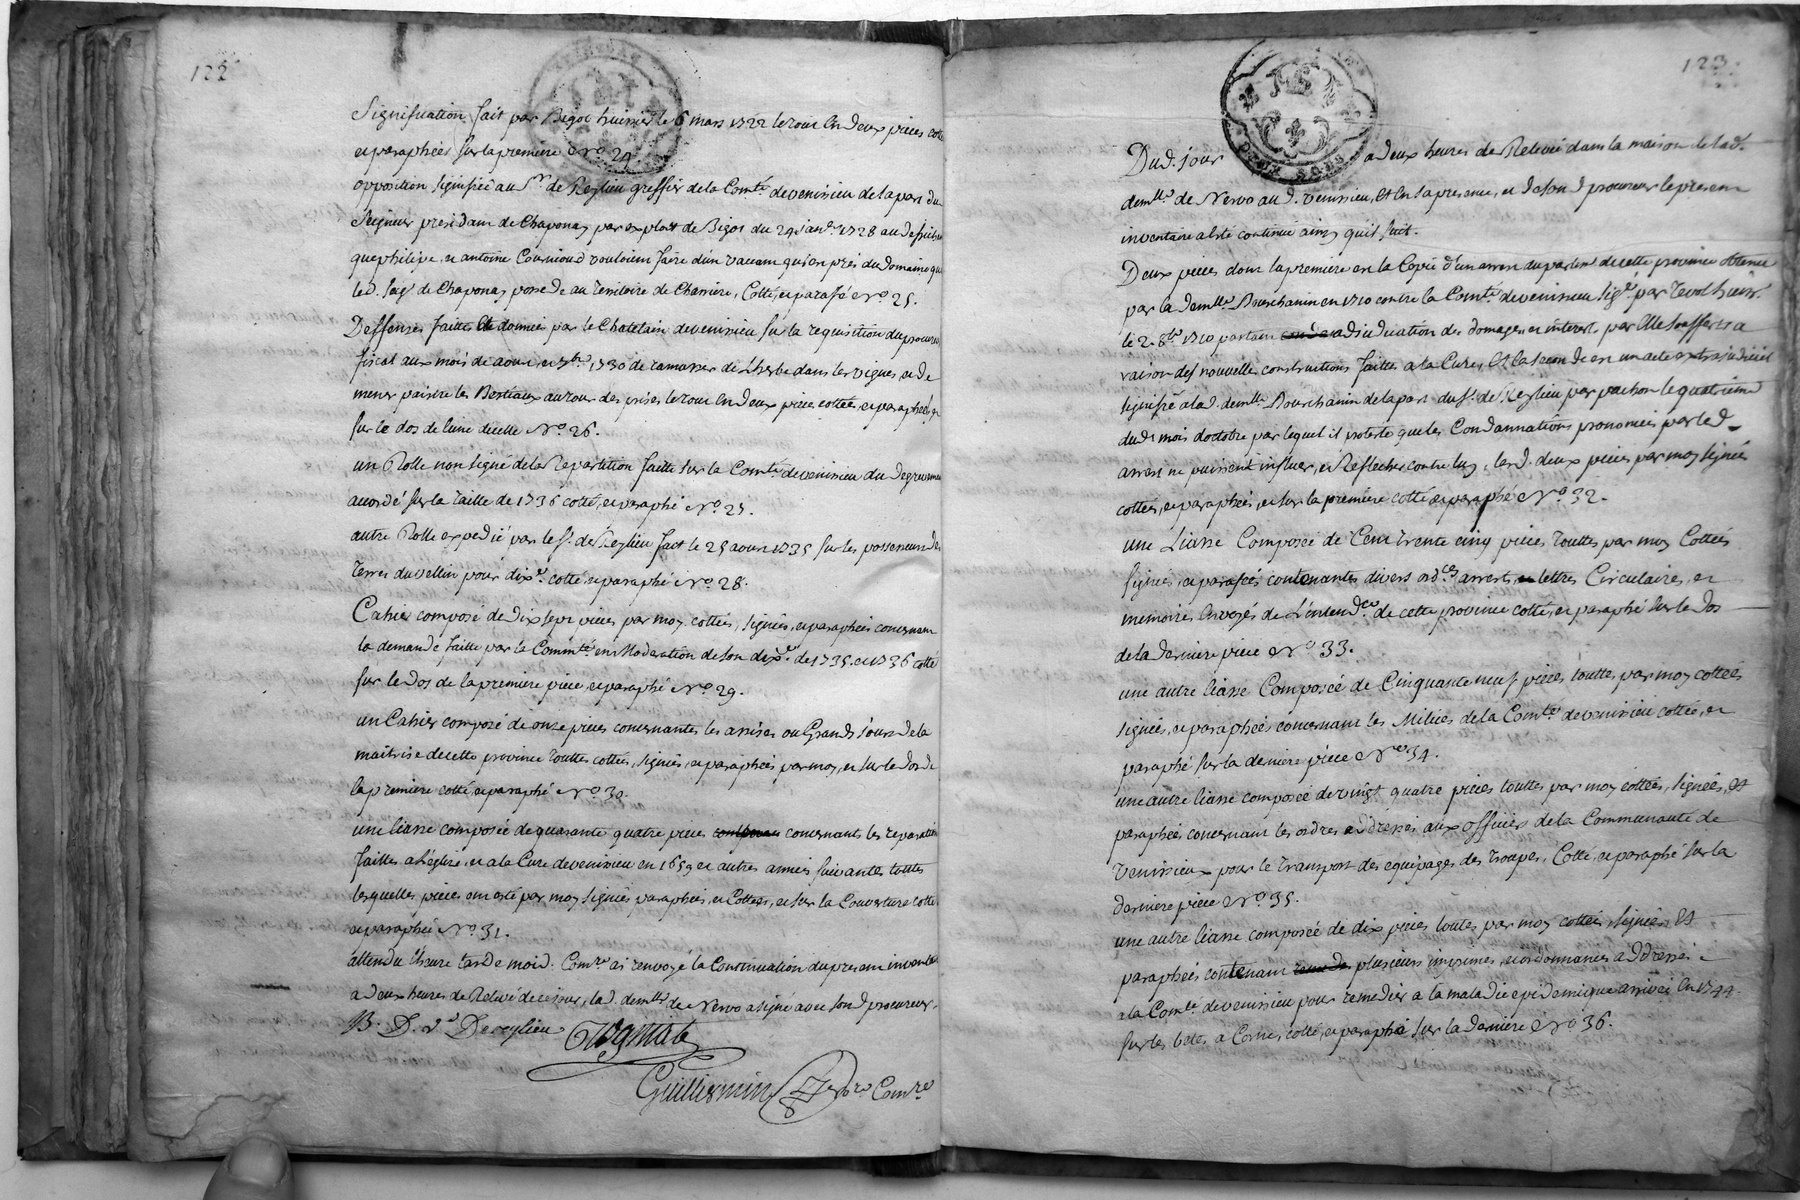 122
Signification fait par Bigot huissier le 6 mars 1722 le tout en deux pieces cott
et paraphées sur la premiere No. 24
opposition signifiée au Sr. de Reylieu greffier de la Comté. de venissieu de la part du
seigneur president de Chaponay par exploit de Bigot du 24 janr. 1728 au desir
que philipe et antoine Cournioud vouloient faire d'un vacant qui en près du domaine que
led. seigr. de Chaponay possede au Territoire de Charriere, Cotté, et parafé No. 25.
Deffenses faittes et donnée par le Chatelain de venissieu sur la requisition du procureur
fiscal aux mois de aout et 7bre 1730 de ramasser de L'herbe dans les vignes, et de
mener paistre les Bestiaux autour des prises le tout en deux pieces cottées, et paraphées, et
sur le dos de l'une dicelle No. 26.
un Rolle non signé de la Repartition faitte sur la Comté. de venissieu du degrevement
accordé sur la taille de 1736 cotté, et paraphé No. 27.
autre Rolle expedié par le Sr. de Reylieu fait le 25 aoust 1735 sur les possesseurs de
Terres du vellin pour dixe. cotté et paraphé No. 28.
Cahier composé de Dix sept pieces par moy cottées, signées, et paraphées concernant
la demande faitte par la Commté en Moderation de son dixe. de 1735. et 1736 cotté
sur le dos de la premiere piece et paraphé No. 29.
un Cahier composé de onze pieces concernantes les assises ou Grands jours de la
maitrise de cette province touttes cottées, signées, et paraphées par moy, et sur le dos de
la premiere cotté et paraphé No. 30.
une liasse composée de quarante quatre pieces concernants les reparations
faittes a L'église, et a la Cure de venissieu en 1659 et autres années suivantes touttes
lesquelles pieces ont esté par moy signées paraphées, et Cottées, et sur la Couverture cotté
et paraphée No. 31.
attendu l'heure tarde moid. Comre. ai renvoyé la Continuation du present inventaire
a deux heures de Relevé de ce jour, lad. demlle de Nervo a signé avec son d procureur.
B. D. Dereylieu
Guillermin Comre
123
Dud. jour a deux heures de Relevée dans la maison de lad.
demlle. de Nervo aud. venissieu, et en sa presence, et de son d procureur le present
inventaire a esté continué ainsy qu'il suit.
Deux pieces dont la premiere en la Copie d'un arrest du parlemt de cette province obtenu
par la demlle. Bourchanin en 1710 contre la Comté. de venissieu sigé. par Revol huisr.
le 2. 8bre 1710 portant adjudication des domages et interest par Elle soufferts a
raison des nouvelles constructions faittes a la Cure, et la seconde en un acte extrajudiciel
signifié a lad. demlle. Bourchanin de la part du Sr. de Reylieu par pachon le quatrieme
dud. mois doctobre par lequel il proteste que les Condannations prononcées par led
arrest ne puissent influer, et Reflecher contre luy, lesd. deux pieces par moy signées
cottées, et paraphées, et sur la premiere cotté et paraphé No. 32.
une Liasse Composée de Cent trente cinq pieces touttes par moy Cottées
signées, et parafées contenantes divers ordces arrests, lettres Circulaires, et
memoires Envoyés de L'intendce. de cette province cotté, et paraphé sur le dos
de la derniere piece No. 33.
une autre liasse Composée de Cinquante neuf pieces touttes par moy cottées
signées, et paraphées concernant les Milices de la Comté. de venissieu cottée, et
paraphé sur la derniere piece No. 34.
une autre liasse composée de vingt quatre pieces touttes par moy cottées, signées, et
paraphées concernant les ordres addressés aux officiers de la Communauté de
Venissieux pour le transport des equipages des troupes, Cotté, et paraphé sur la
derniere piece No. 35.
une autre liasse composée de dix pieces toutes par moy cottées signées et
paraphées contenant plusieurs imprimés, et ordonnances addressées
a la Comté. de venissieu pour remedier a la maladie epidemique arrivée En 1744
sur les betes a Cornes, cotté, et paraphé sur la derniere No. 36.